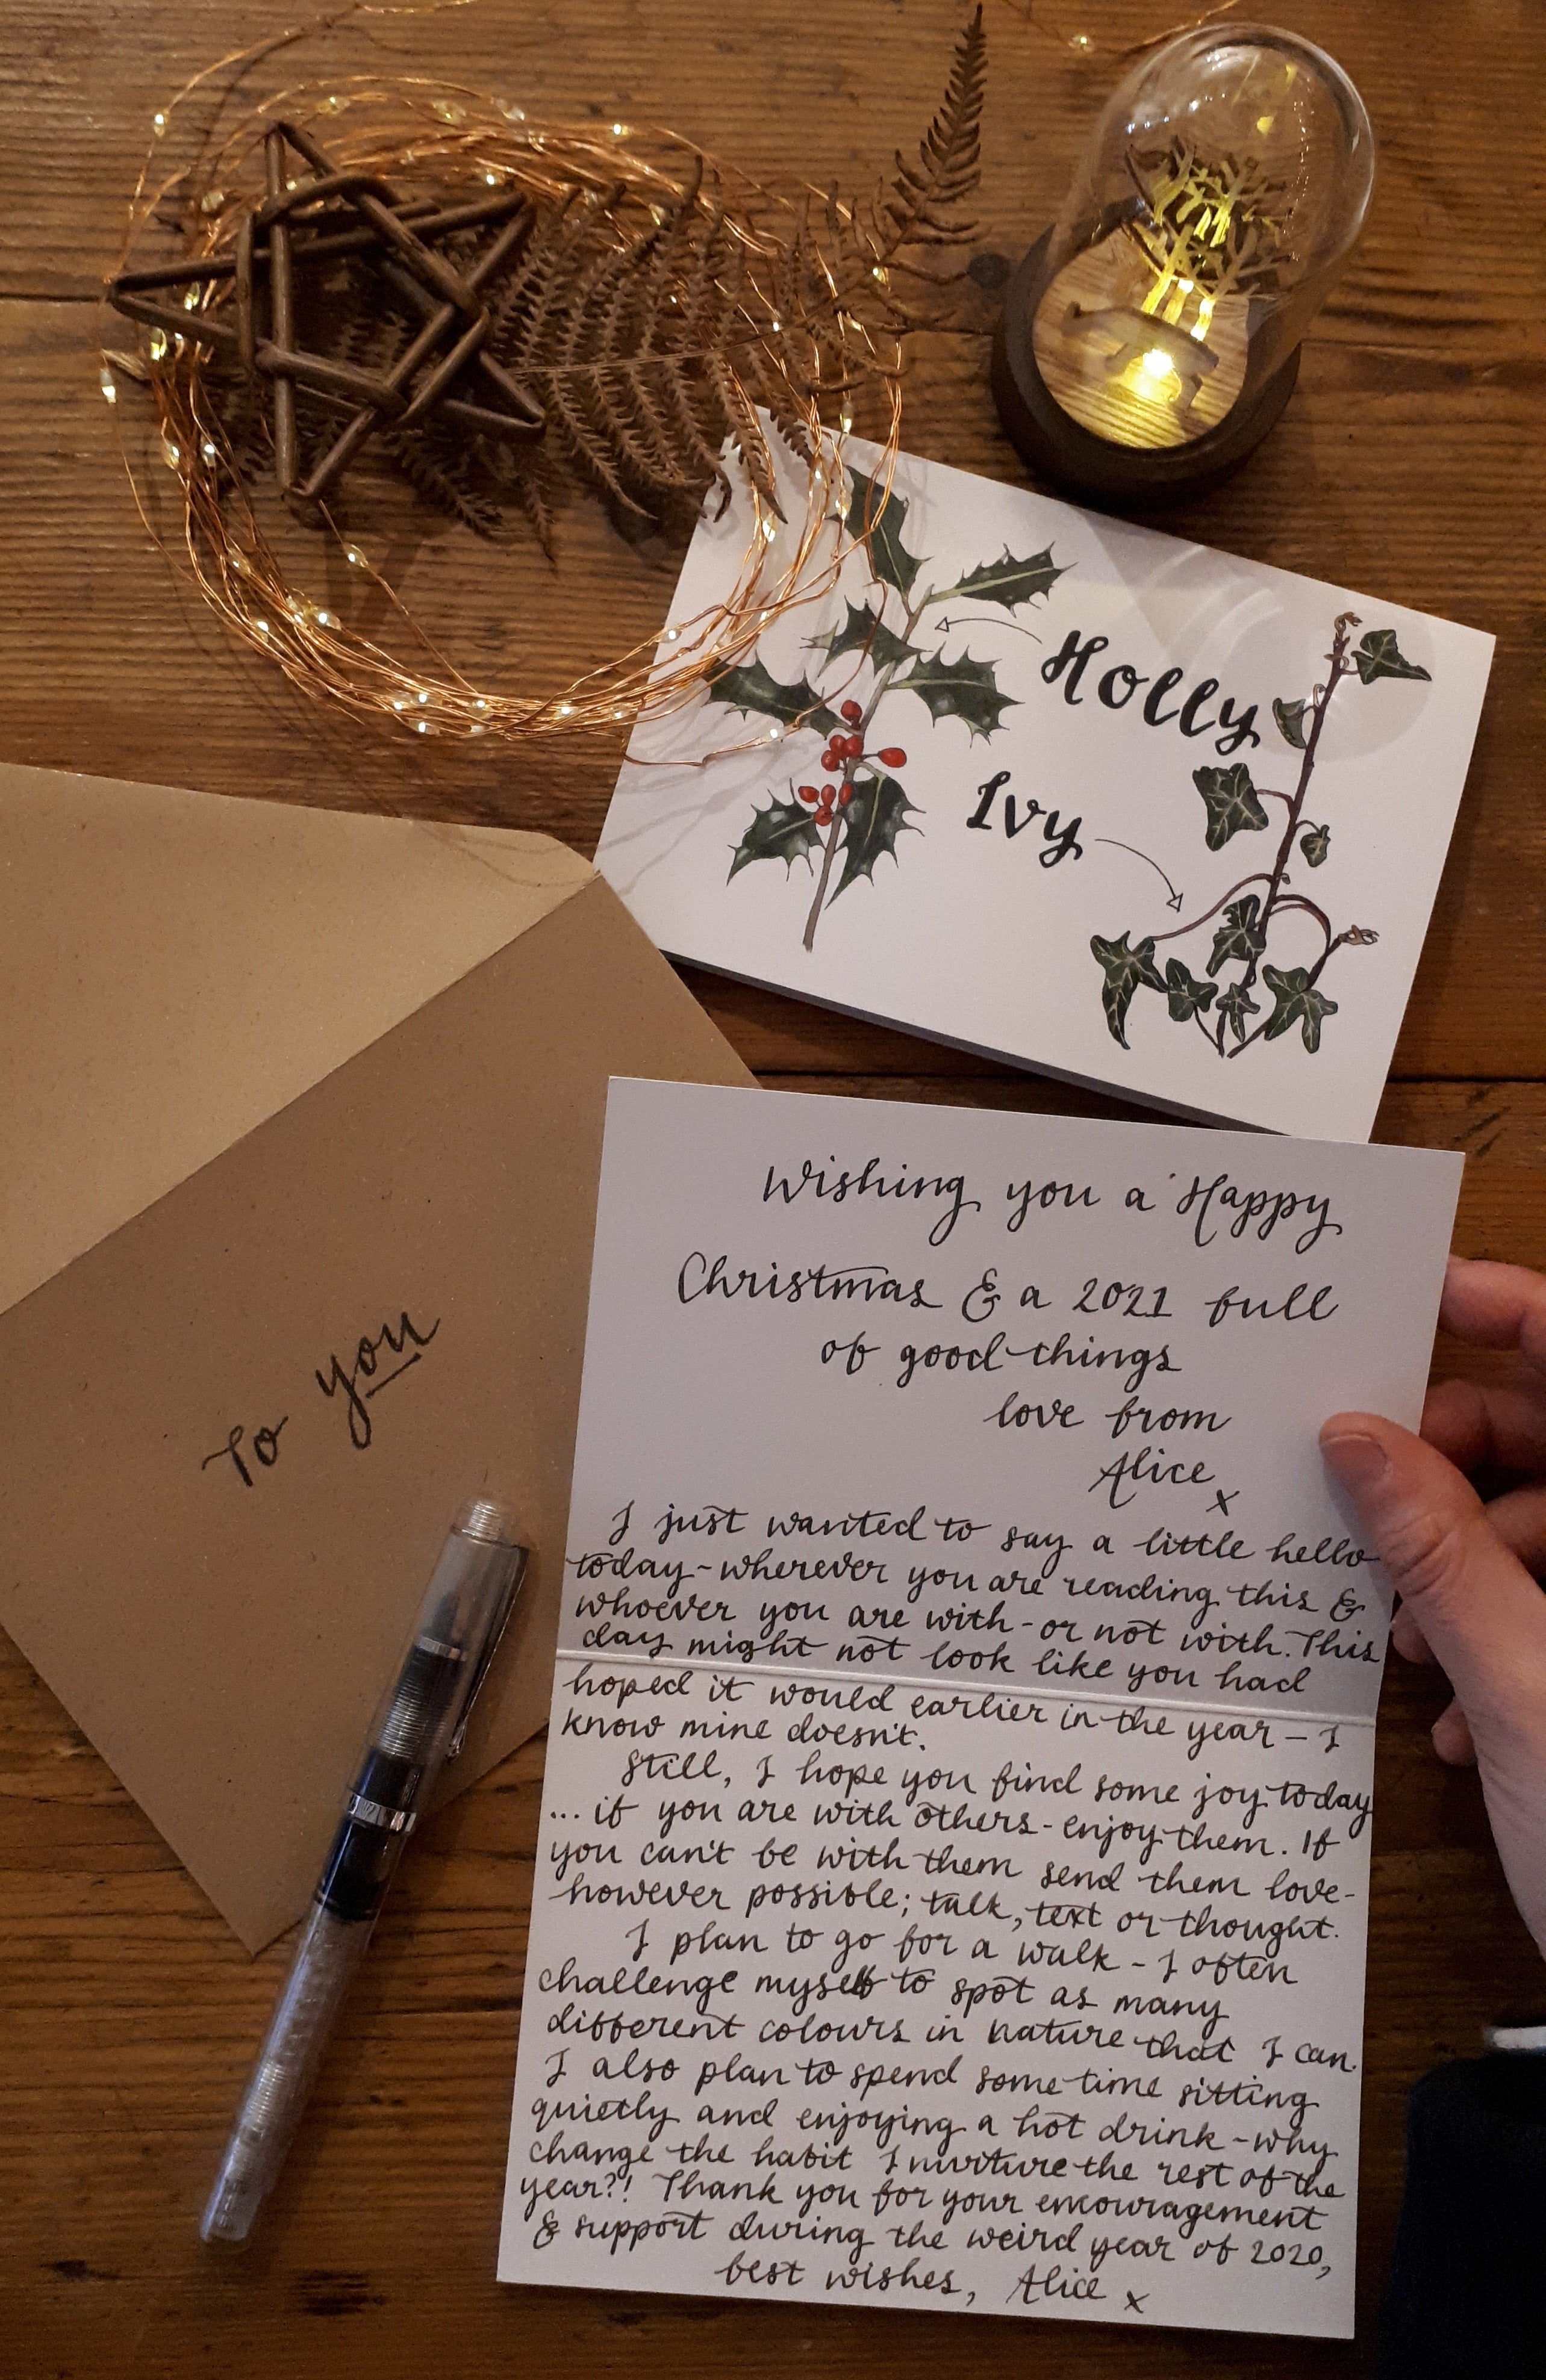 Holly
Ivy
To you
Wishing you a Happy
Christmas & a 2021 full
of good things
love from
Alice x
I just wanted to say a little hello
today - wherever you are reading this &
whoever you are with - or not with. This
day might not look like you had
hoped it would earlier in the year - I
know mine doesn't.
Still, I hope you find some joy today
... if you are with others - enjoy them. If
you can't be with them send them love -
however possible; talk, text or thought.
I plan to go for a walk - I often
challenge myself to spot as many
different colours in nature that I can.
I also plan to spend some time sitting
quietly and enjoying a hot drink - why
change the habit I nurture the rest of the
year?! Thank you for your encouragement
& support during the weird year of 2020,
best wishes, Alice x